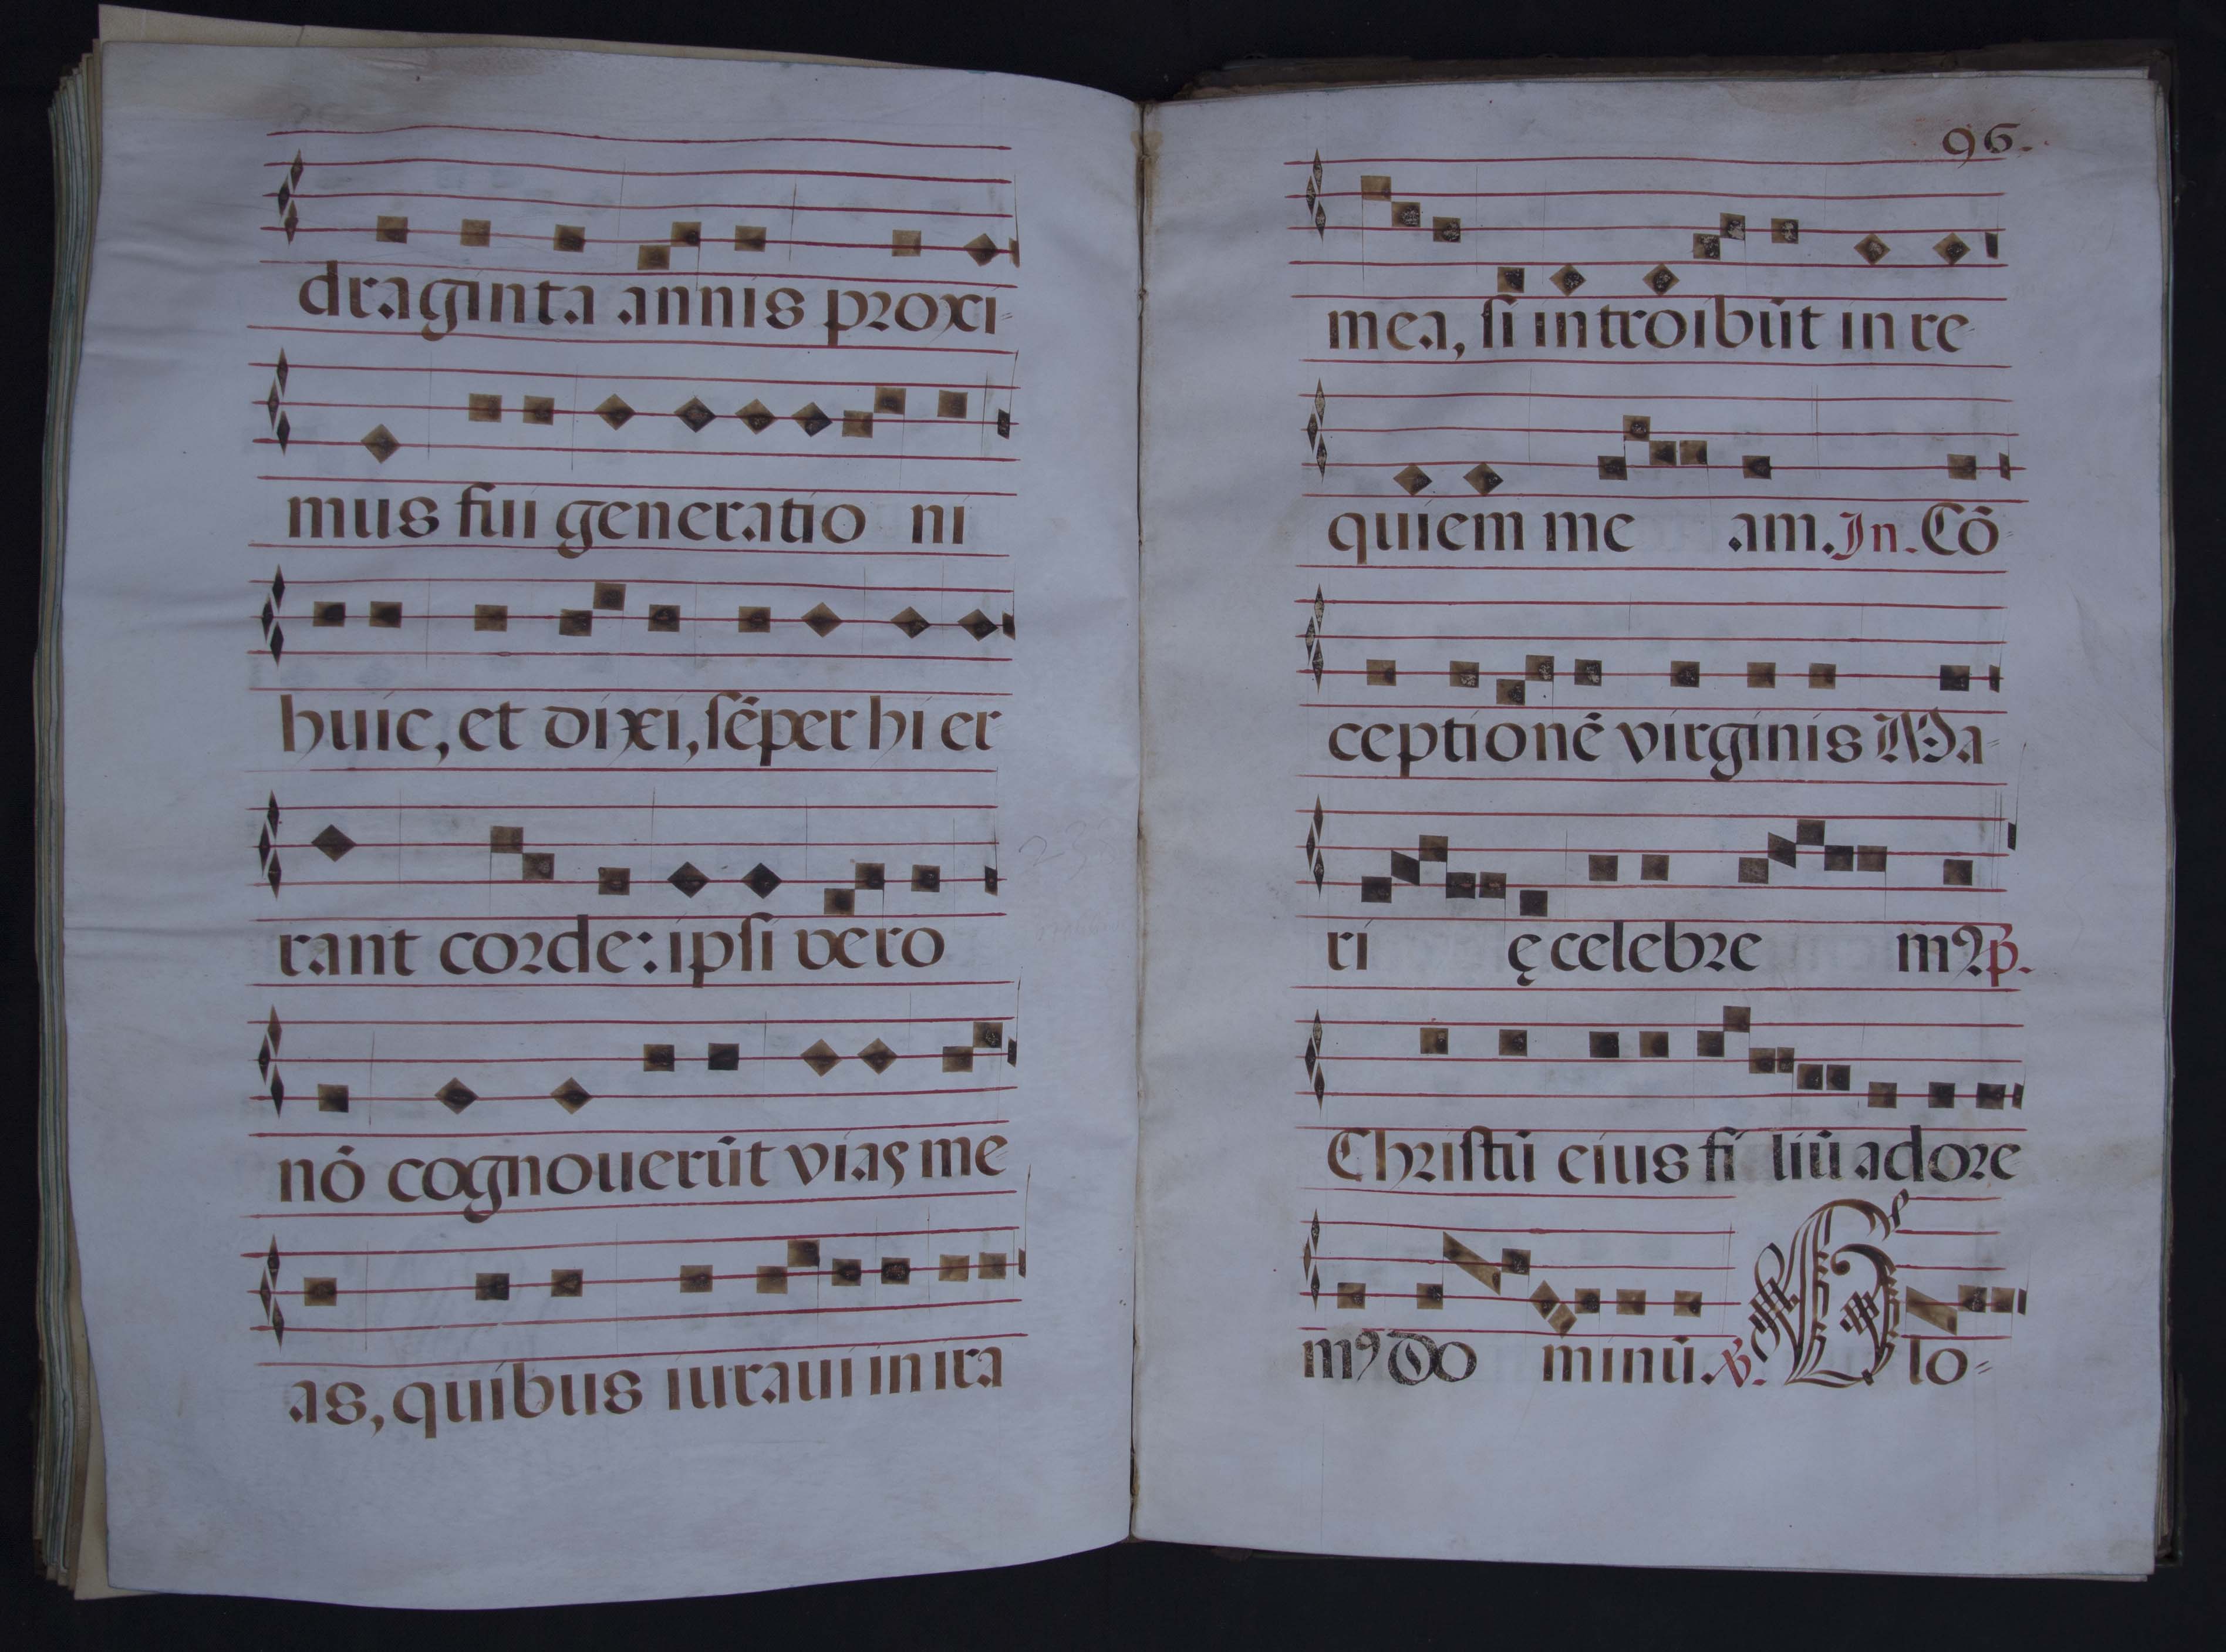 draginta annis proxi-
mus fui generatio ni
huic, et dixi, sẽper hi er
rant corde: ipsi vero
nõ cognouerũt vias me-
as, quibus iuraui in ira
96.
mea, si introibũt in re-
quiem me am. In. Cõ-
ceptionẽ virginis Ma-
ri ę celebre mꝰ p̃.
Christũ eius fi liũ adore
mꝰ do minũ. ps. Glo-